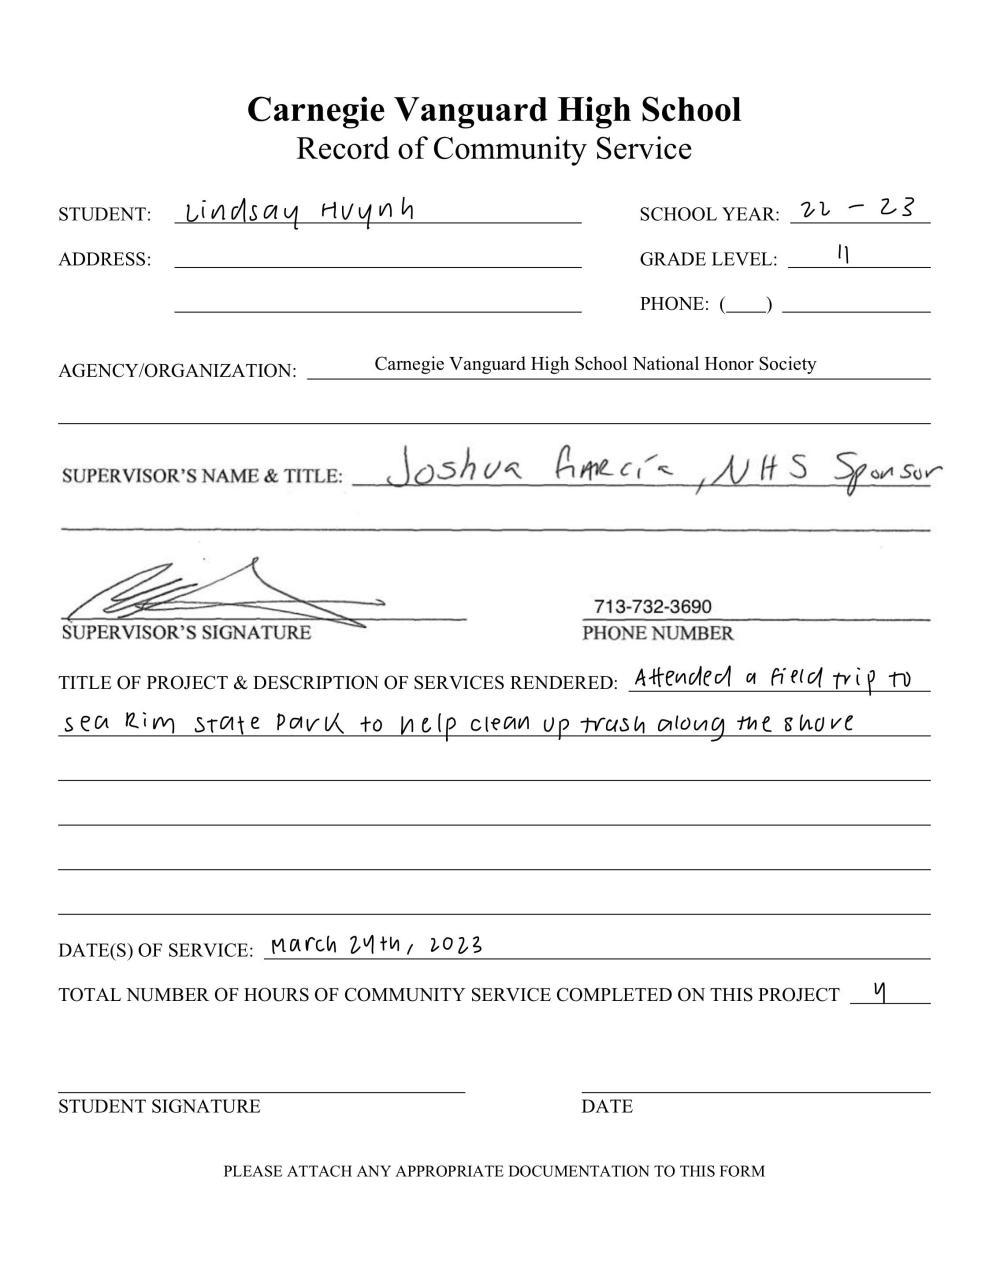 Carnegie Vanguard High School
Record of Community Service
STUDENT: Lindsay Huynh SCHOOL YEAR: 22 - 23
ADDRESS: GRADE LEVEL: 11
PHONE: (____)
AGENCY/ORGANIZATION: Carnegie Vanguard High School National Honor Society
SUPERVISOR'S NAME & TITLE: Joshua Garcia, NHS Sponsor
713-732-3690
SUPERVISOR'S SIGNATURE PHONE NUMBER
TITLE OF PROJECT & DESCRIPTION OF SERVICES RENDERED: Attended a field trip to
sea Rim state Park to help clean up trash along the shore
DATE(S) OF SERVICE: March 24th, 2023
TOTAL NUMBER OF HOURS OF COMMUNITY SERVICE COMPLETED ON THIS PROJECT 4
STUDENT SIGNATURE DATE
PLEASE ATTACH ANY APPROPRIATE DOCUMENTATION TO THIS FORM